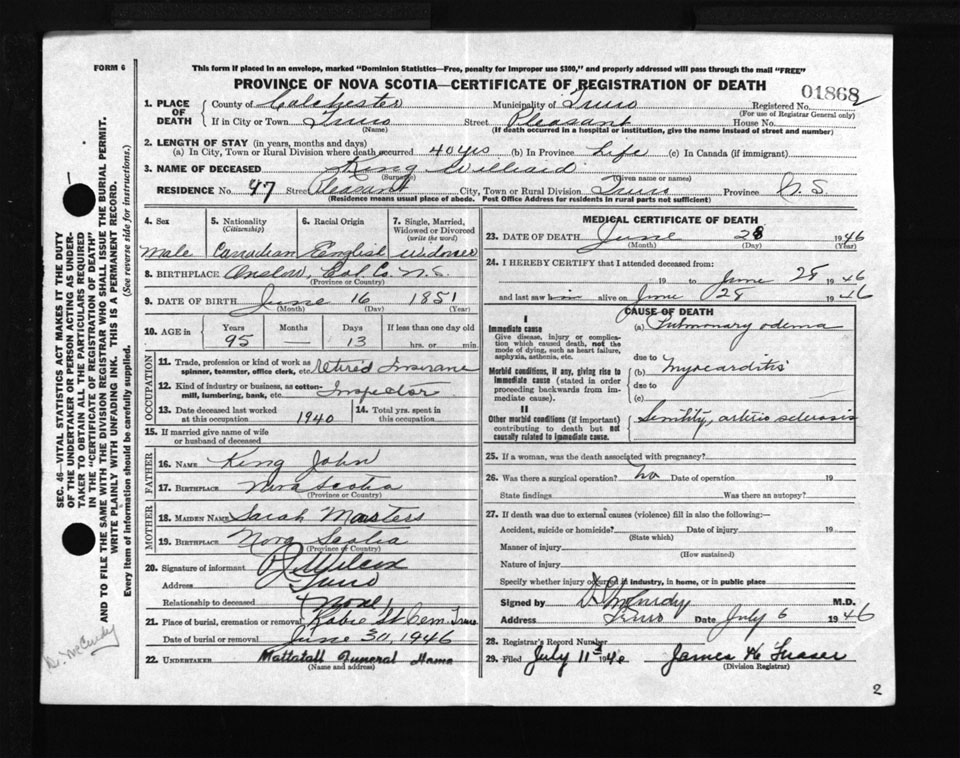 FORM 6
This form if placed in an envelope, marked "Dominion Statistics—Free, penalty for improper use $300," and properly addressed will pass through the mail "FREE"
PROVINCE OF NOVA SCOTIA—CERTIFICATE OF REGISTRATION OF DEATH
01868
2
1. PLACE OF DEATH
County of Colchester Municipality of Truro Registered No.
(For use of Registrar General only)
If in City or Town Truro Street Pleasant House No.
(Name) (If death occurred in a hospital or institution, give the name instead of street and number)
2. LENGTH OF STAY (in years, months and days)
(a) In City, Town or Rural Division where death occurred 40 yrs (b) In Province Life (c) In Canada (if immigrant)
3. NAME OF DECEASED King Williard
(Surname) (Given name or names)
RESIDENCE No. 97 Street Pleasant City, Town or Rural Division Truro Province N.S.
(Residence means usual place of abode. Post Office Address for residents in rural parts not sufficient)
4. Sex
Male
5. Nationality
(Citizenship)
Canadian
6. Racial Origin
English
7. Single, Married, Widowed or Divorced
(write the word)
Widower
8. BIRTHPLACE Onslow, Col. Co. N.S.
(Province or Country)
9. DATE OF BIRTH June 16 1851
(Month) (Day) (Year)
10. AGE in
Years Months Days If less than one day old
95 — 13 hrs. or min.
OCCUPATION
11. Trade, profession or kind of work as
spinner, teamster, office clerk, etc. retired Insurane
12. Kind of industry or business, as cotton-
mill, lumbering, bank, etc. Inspector
13. Date deceased last worked
at this occupation 1940
14. Total yrs. spent in
this occupation
15. If married give name of wife
or husband of deceased
FATHER
16. NAME King John
17. BIRTHPLACE Nova Scotia
(Province or Country)
MOTHER
18. MAIDEN NAME Sarah Masters
19. BIRTHPLACE Nova Scotia
(Province or Country)
20. Signature of informant Wilcox
Address Truro
Relationship to deceased None
21. Place of burial, cremation or removal Robie St Cem. Truro
Date of burial or removal June 30, 1946
22. UNDERTAKER Mattatall Funeral Home
(Name and address)
MEDICAL CERTIFICATE OF DEATH
23. DATE OF DEATH June 28 1946
(Month) (Day) (Year)
24. I HEREBY CERTIFY that I attended deceased from:
19 to June 28 1946
and last saw him alive on June 28 1946
CAUSE OF DEATH
I
Immediate cause
Give disease, injury or complication which caused death, not the mode of dying, such as heart failure, asphyxia, asthenia, etc.
(a) Pulmonary odema
due to
Morbid conditions, if any, giving rise to immediate cause (stated in order proceeding backwards from immediate cause).
(b) Myocarditis
due to
(c)
II
Other morbid conditions (if important) contributing to death but not causally related to immediate cause.
Senility, arterio sclerosis
25. If a woman, was the death associated with pregnancy?
26. Was there a surgical operation? No Date of operation 19
State findings Was there an autopsy?
27. If death was due to external causes (violence) fill in also the following:—
Accident, suicide or homicide? Date of injury 19
(State which)
Manner of injury
(How sustained)
Nature of injury
Specify whether injury occurred in industry, in home, or in public place
Signed by McCurdy M.D.
Address Truro Date July 6 1946
28. Registrar's Record Number
29. Filed July 11 1946 James H Fraser
(Division Registrar)
2
SEC. 46—VITAL STATISTICS ACT MAKES IT THE DUTY
OF THE UNDERTAKER OR PERSON ACTING AS UNDER-
TAKER TO OBTAIN ALL THE PARTICULARS REQUIRED
IN THE "CERTIFICATE OF REGISTRATION OF DEATH"
AND TO FILE THE SAME WITH THE DIVISION REGISTRAR WHO SHALL ISSUE THE BURIAL PERMIT.
WRITE PLAINLY WITH UNFADING INK. THIS IS A PERMANENT RECORD.
Every item of information should be carefully supplied. (See reverse side for instructions.)
Dr. McCurdy